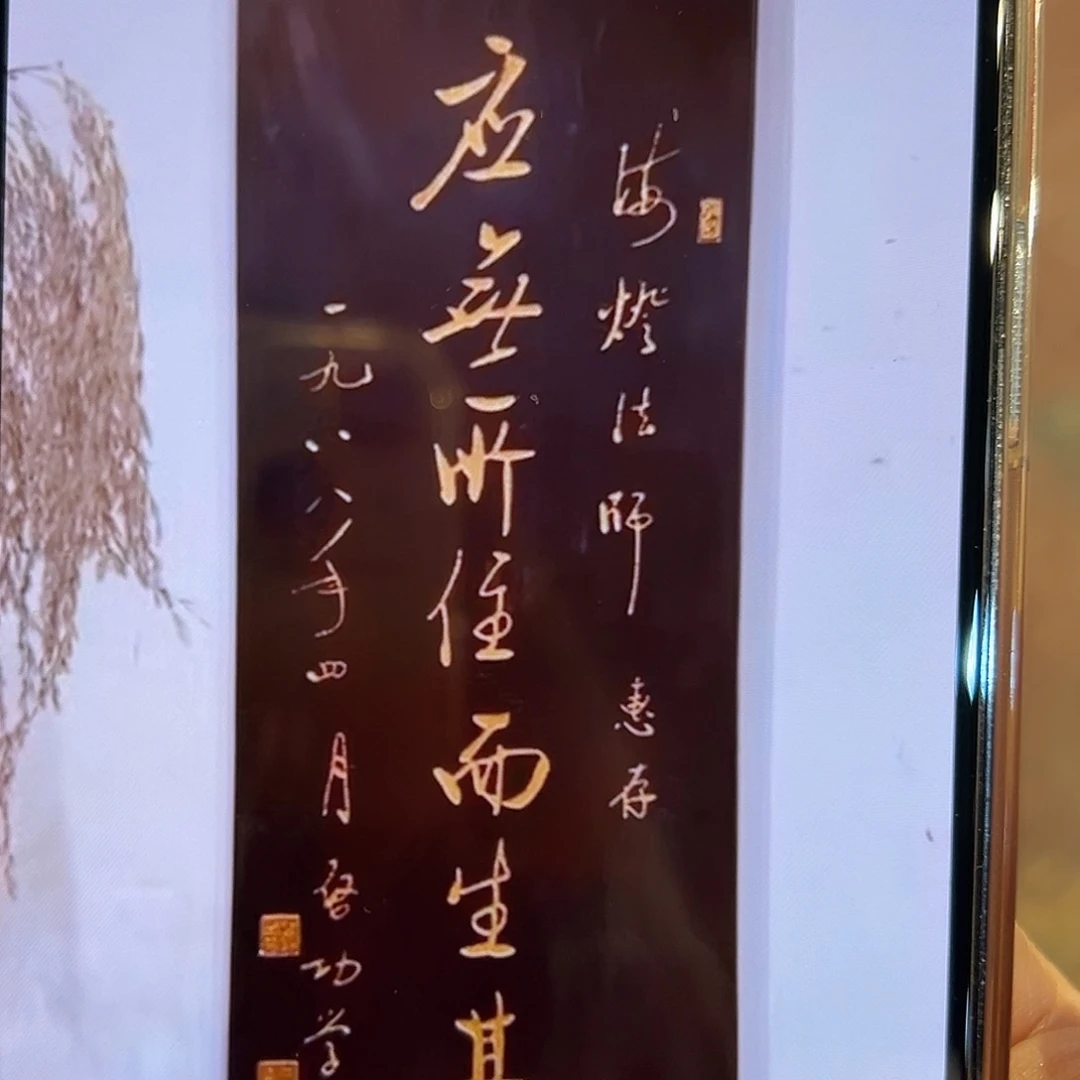 海燈法師惠存
應無所住而生其
一九八八年四月啓功学